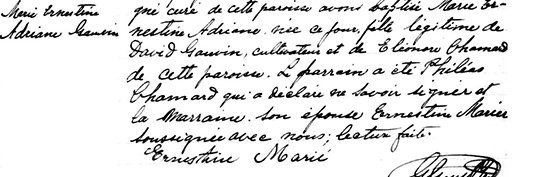 Marie Ernestine
Adriane Gauvin
gné curé de cette paroisse avons baptisé Marie Er-
nestine Adriane, née ce jour, fille légitime de
David Gauvin, cultivateur et de Eléonore Chamard
de cette paroisse. Le parrain a été Philéas
Chamard qui a déclaré ne savoir signer et
la marraine son épouse Ernestine Marier
soussignée avec nous; lecture faite.
Ernestine Marié